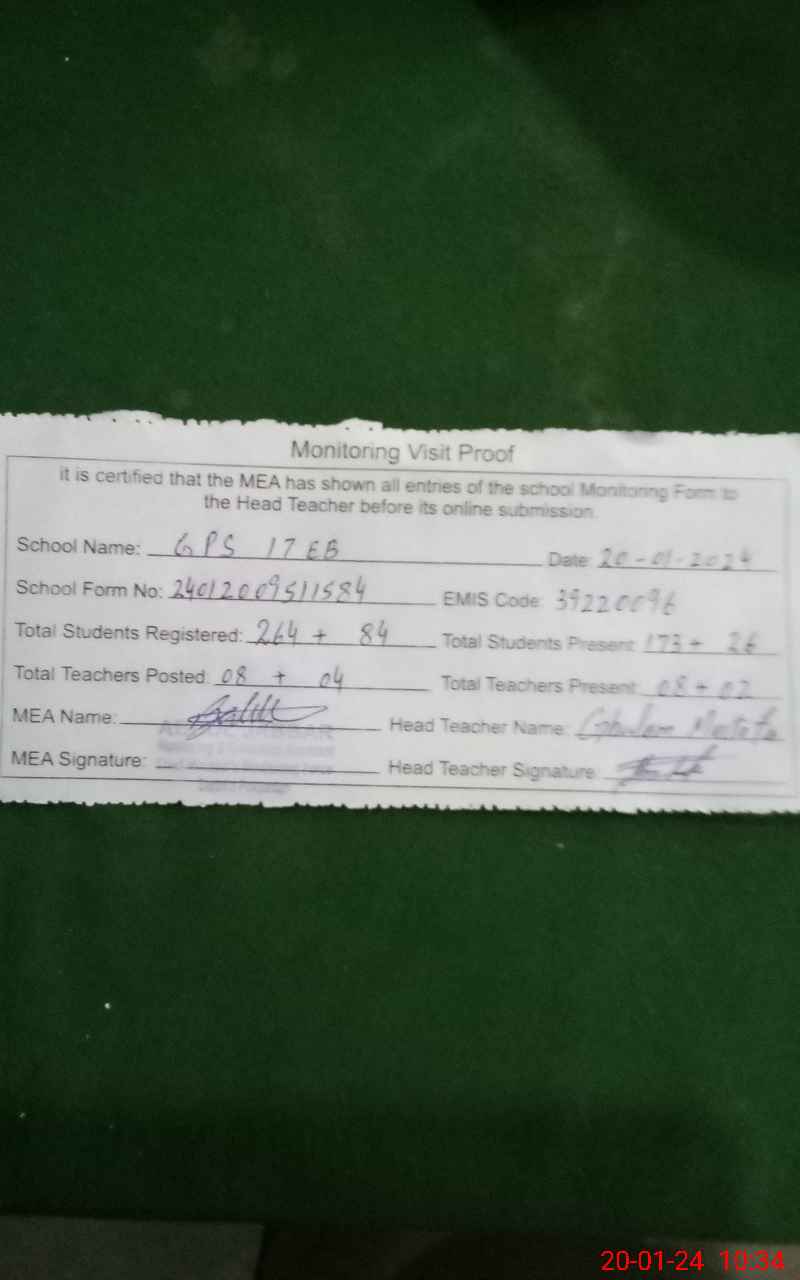 Monitoring Visit Proof
it is certified that the MEA has shown all entries of the school Monitoring Form to
the Head Teacher before its online submission.
School Name: GPS 17 EB Date: 20-01-2024
School Form No: 24012009511584 EMIS Code: 39220096
Total Students Registered: 264 + 84 Total Students Present: 173 + 26
Total Teachers Posted: 08 + 04 Total Teachers Present: 08 + 02
MEA Name: Head Teacher Name: Ghulam
MEA Signature: Head Teacher Signature:
20-01-24 10:34